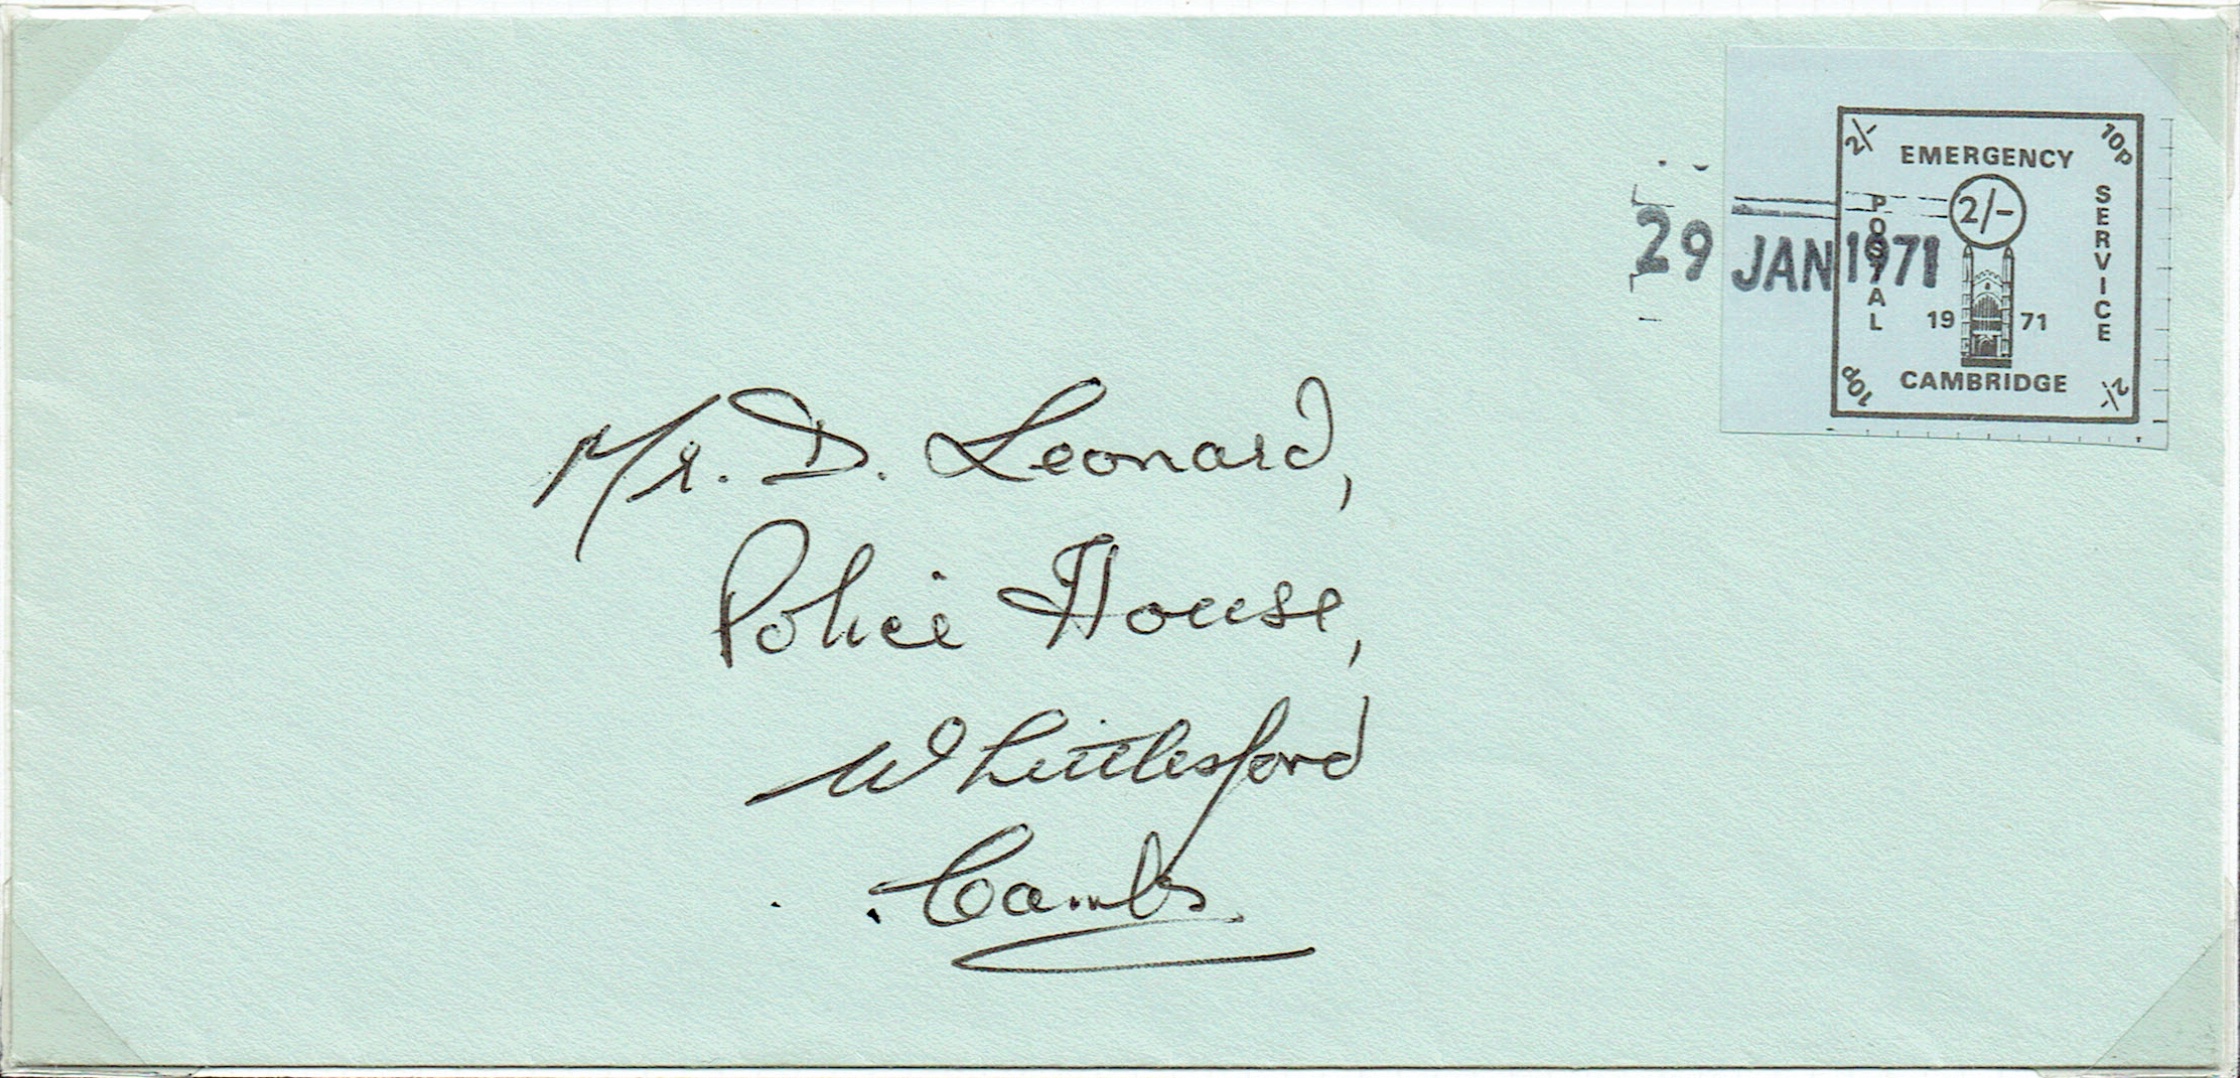 2/-
10p
EMERGENCY
POSTAL
2/-
SERVICE
29 JAN 1971
19 71
CAMBRIDGE
10p
2/-
Mr. D. Leonard,
Police House,
Whittlesford
Cambs